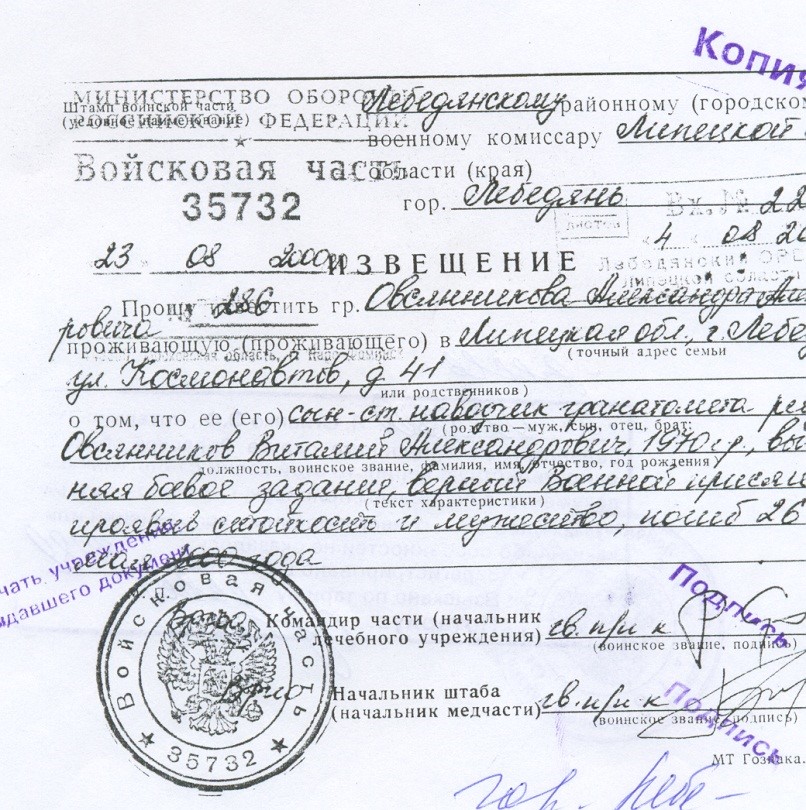 Копия
МИНИСТЕРСТВО ОБОРОНЫ
Штамп воинской части
(условное наименование)
РОССИЙСКОЙ ФЕДЕРАЦИИ
Лебедянскому районному (городско
военному комиссару Липецкой
Войсковая часть
области (края)
35732
гор. Лебедянь
Вх. № 22
листов
4 08 20
23 08 2000
ИЗВЕЩЕНИЕ
Лебедянский ОР
Липецкой области
286
Прошу известить гр. Овсянникова Александра Але
ровича
проживающую (проживающего) в Липецкая обл., г. Лебед
(точный адрес семьи
ул. Космонавтов, д 41
или родственников)
о том, что ее (его) сын-ст. наводчик гранатомета
(родство — муж, сын, отец, брат:
Овсянников Виталий Александрович, 1970 г.р., вы
должность, воинское звание, фамилия, имя, отчество, год рождения)
няя боевое задание, верный Военной присяге
(текст характеристики)
проявив стойкость и мужество, погиб 26
2000 года
чать учреждения
давшего документ
Войсковая часть
35732
Врио Командир части (начальник
лечебного учреждения) гв. п/п-к
(воинское звание, подпись)
Подпись
Врио Начальник штаба
(начальник медчасти) гв. п/п-к
(воинское звание, подпись)
Подпись
МТ Гознака.
гор. Лебе-